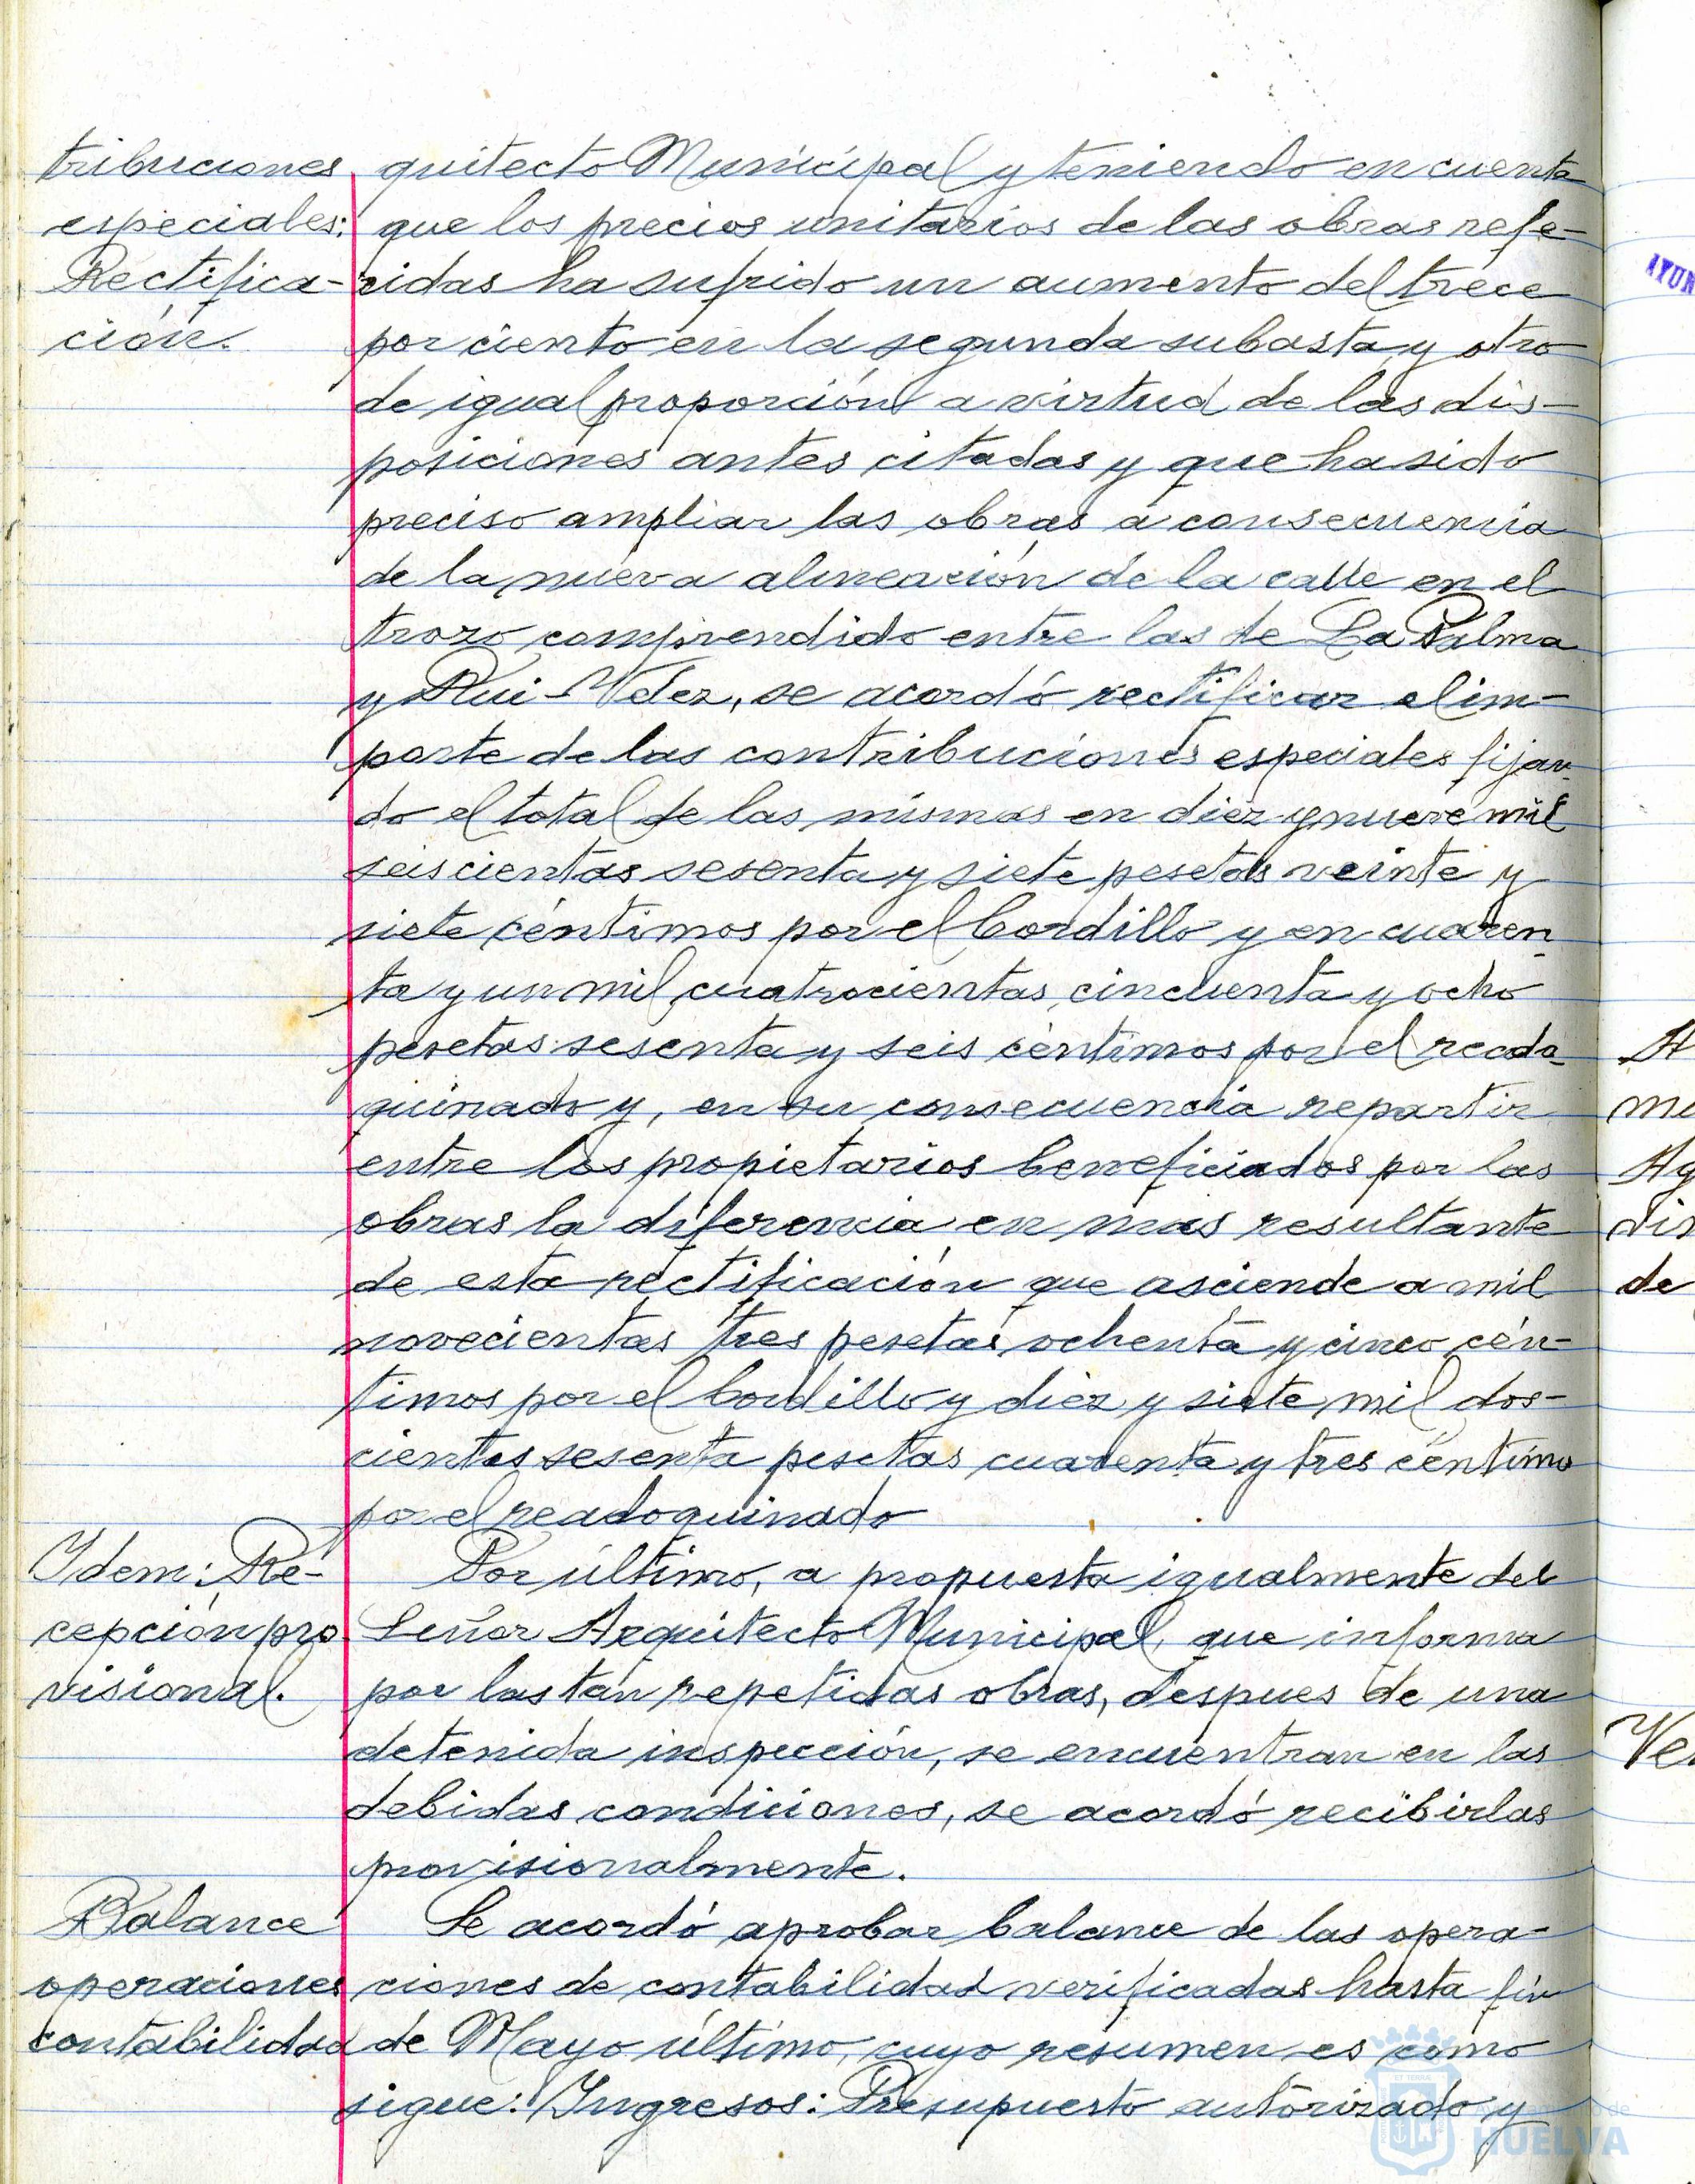 tribuciones
especiales:
Rectifica-
ción.
quitecto Municipal y teniendo en cuenta
que los precios unitarios de las obras refe-
ridas ha sufrido un aumento del trece
por ciento en la segunda subasta y otro
de igual proporción a virtud de las dis-
posiciones antes citadas y que ha sido
preciso ampliar las obras a consecuencia
de la nueva alineación de la calle en el
trozo comprendido entre las de La Palma
y Rui-Velez, se acordó rectificar el im-
porte de las contribuciones especiales fijan-
do el total de las mismas en diez y nueve mil
seiscientas sesenta y siete pesetas veinte y
siete céntimos por el bordillo y en cuaren-
ta y un mil cuatrocientas cincuenta y ocho
pesetas sesenta y seis céntimos por el readо-
quinado y, en su consecuencia repartir
entre los propietarios beneficiados por las
obras la diferencia en mas resultante
de esta rectificación que asciende a mil
novecientas tres pesetas ochenta y cinco cén-
timos por el bordillo y diez y siete mil dos-
cientas sesenta pesetas cuarenta y tres céntimos
por el readoquinado
Idem: Re-
cepción pro
visional.
Por último, a propuesta igualmente del
Señor Arquitecto Municipal, que informa
por las tan repetidas obras, despues de una
detenida inspección, se encuentran en las
debidas condiciones, se acordó recibirlas
provisionalmente.
Balance
operaciones
contabilidad
Se acordó aprobar balance de las opera-
ciones de contabilidad verificadas hasta fin
de Mayo último, cuyo resumen es como
sigue: Ingresos: Presupuesto autorizado y
AYUN
A
mi
Ag
dis
de
Ve
Ayuntamiento de
HUELVA